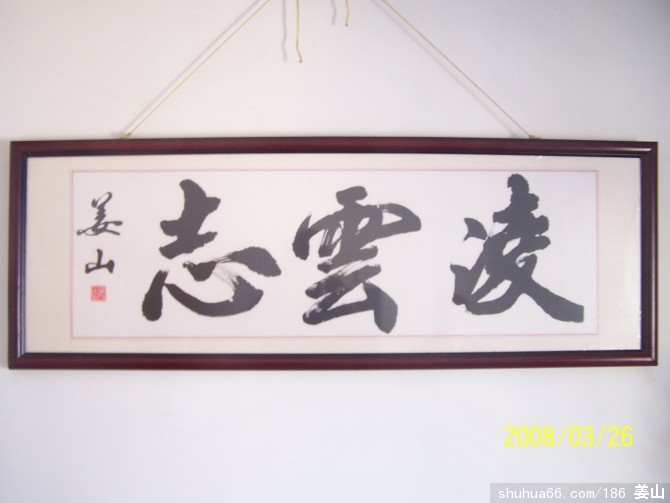 凌雲志
姜山
2008/03/26
shuhua66.com/186 姜山